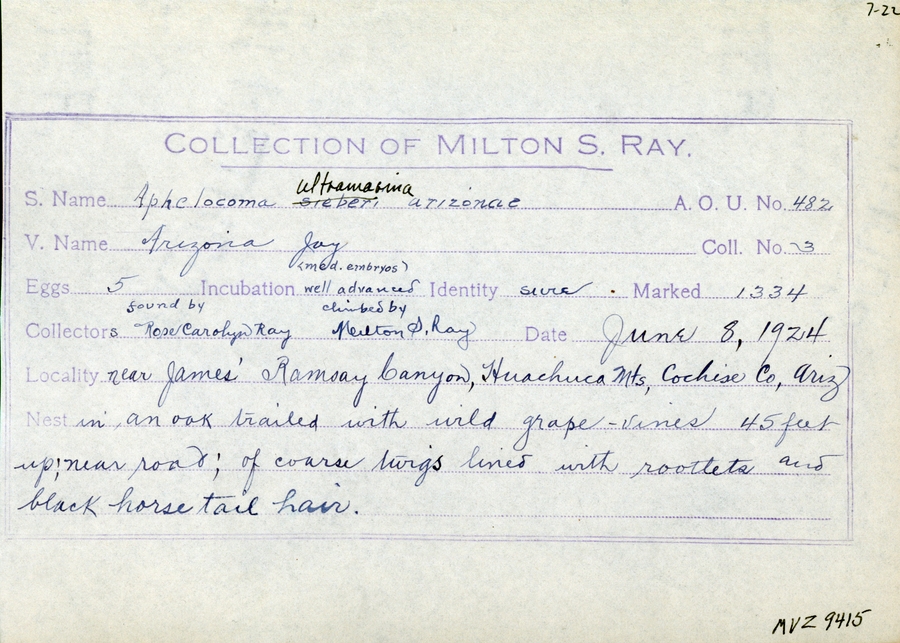 7-22
COLLECTION OF MILTON S. RAY.
ultramarina
S. Name Aphelocoma sieberi arizonae A. O. U. No. 482
V. Name Arizona Jay Coll. No. 3
(med. embryos)
Eggs 5 Incubation well advanced Identity sure . Marked 1334
found by climbed by
Collectors Rose Carolyn Ray Milton S. Ray Date June 8, 1924
Locality near James' Ramsay Canyon, Huachuca Mts, Cochise Co, Ariz
Nest in an oak trailed with wild grape-vines 45 feet
up; near road; of coarse twigs lined with rootlets and
black horse tail hair.
MVZ 9415